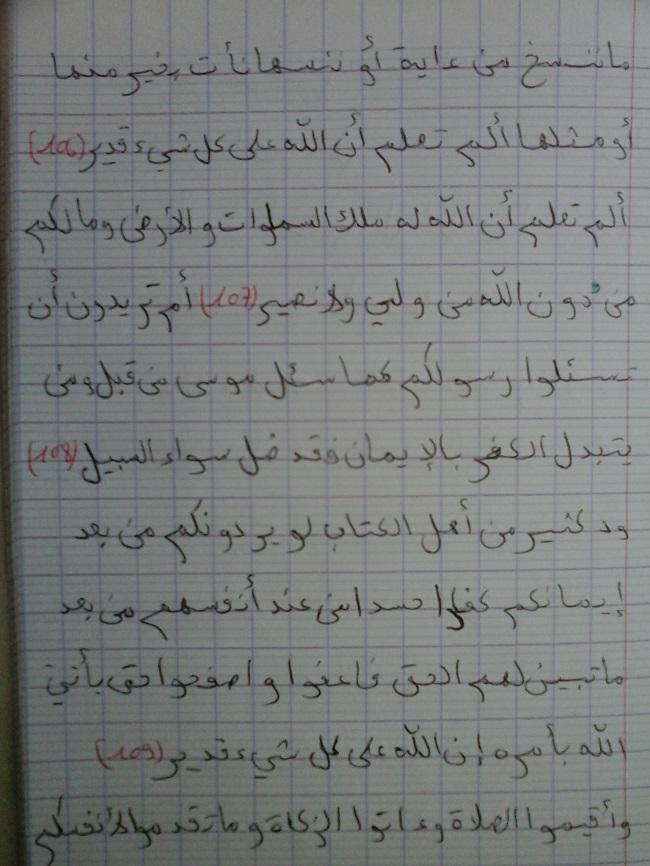 ما ننسخ من ءاية أو ننسها نأت بخير منها
أو مثلها ألم تعلم أن الله على كل شيء قدير (106)
ألم تعلم أن الله له ملك السماوات والأرض وما لكم
من دون الله من ولي ولا نصير (107) أم تريدون أن
تسئلوا رسولكم كما سئل موسى من قبل ومن
يتبدل الكفر بالإيمان فقد ضل سواء السبيل (108)
ود كثير من أهل الكتاب لو يردونكم من بعد
إيمانكم كفارا حسدا من عند أنفسهم من بعد
ما تبين لهم الحق فاعفوا واصفحوا حتى يأتي
الله بأمره إن الله على كل شيء قدير (109)
وأقيموا الصلاة وءاتوا الزكاة وما تقدموا لأنفسكم